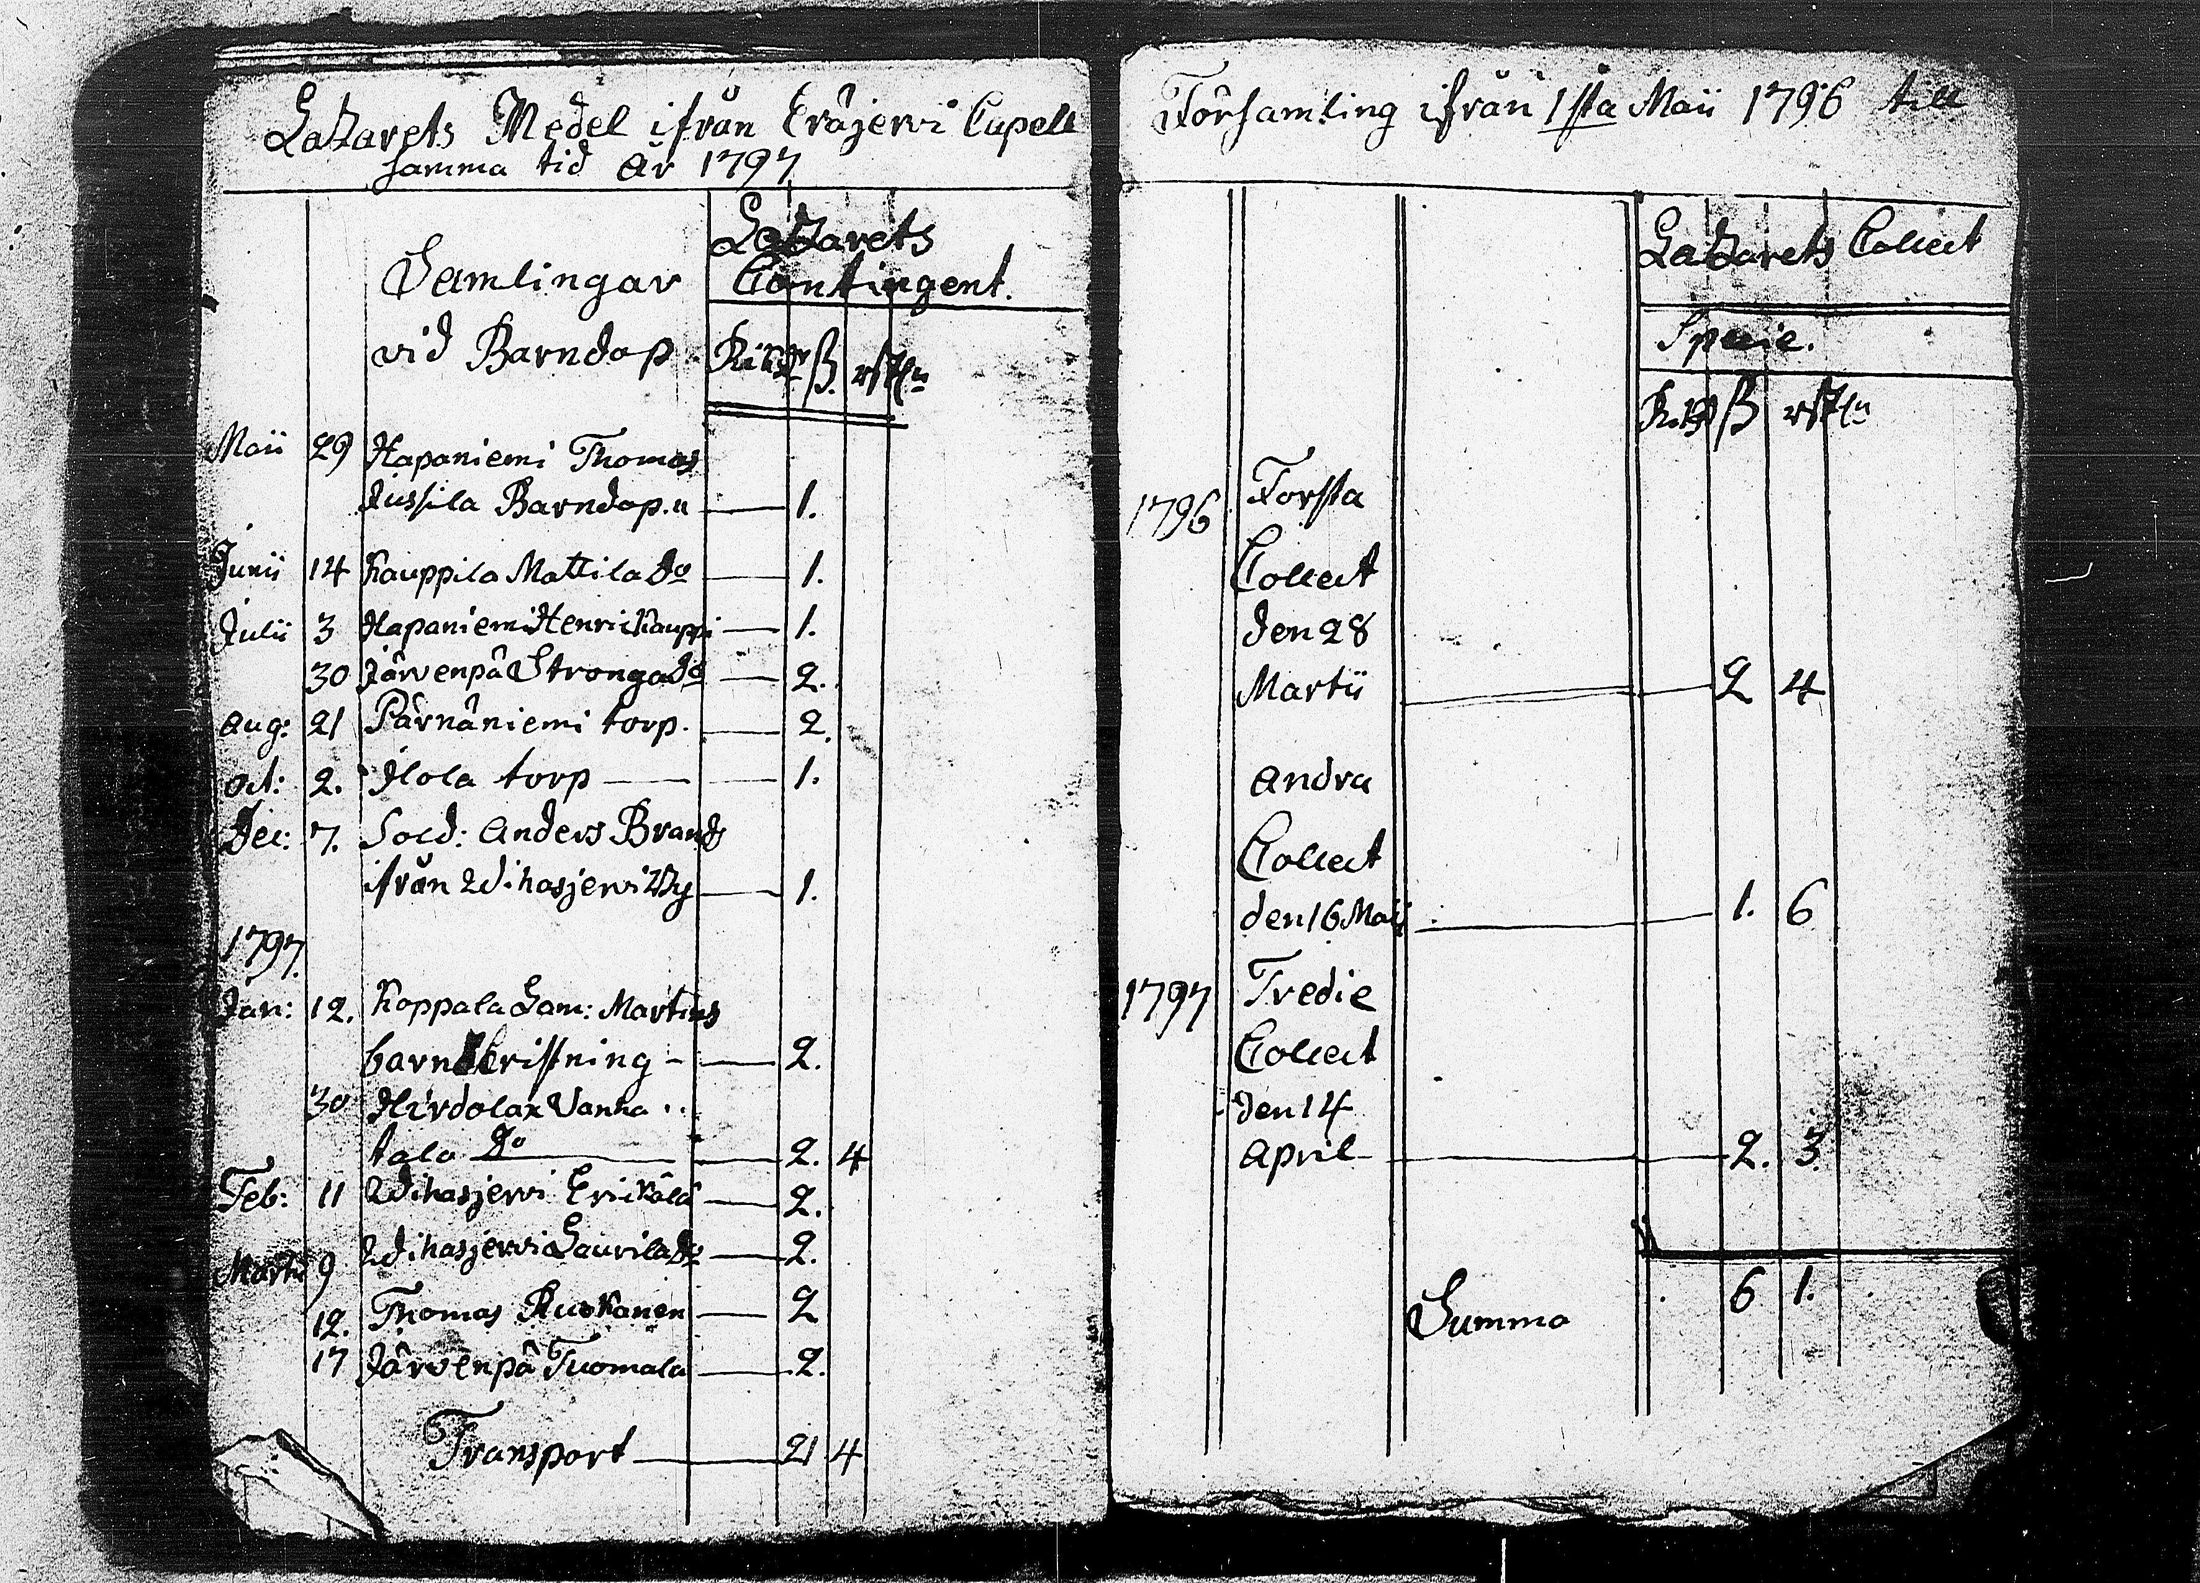 Latzarets Medel ifrån Eräjerwi Capell
samma tid År 1797
Samlingar
vid Barndop
Latzarets
Contingent.
Rikdr ß. rstln
Maii 29 Hapaniemi Thomas
Jussila Barndop. 1.
Junii 14 Kauppila Mattila do 1.
Julii 3 Hapaniemi Henric Kauppi 1.
30 Järvenpä Stronga do 2.
Aug: 21 Pärnäniemi torp. 2.
Oct: 2. Ilola torp 1.
Dec: 7. Sold: Anders Brands
ifrån Wihasjerwi By 1.
1797.
Jan: 12. Koppala Lam: Martins
barnChristning 2.
30 Hirdolax Vanha
talo do 2. 4
Feb: 11 Wihasjerwi Erickälä 2.
Martii 9 Wihasjerwi Laurila do 2.
12. Thomas Ruokanen 2
17 Järvenpä Tuomala 2.
Transport 21 4
Församling ifrån 1sta Maii 1796 till
Latzarets Collect
Specie.
Rikd ß rstln
1796 Forsta
Collect
den 28
Martii 2 4
Andra
Collect
den 16 Maii 1. 6
1797 Tredie
Collect
den 14
April 2. 3.
Summa 6 1.